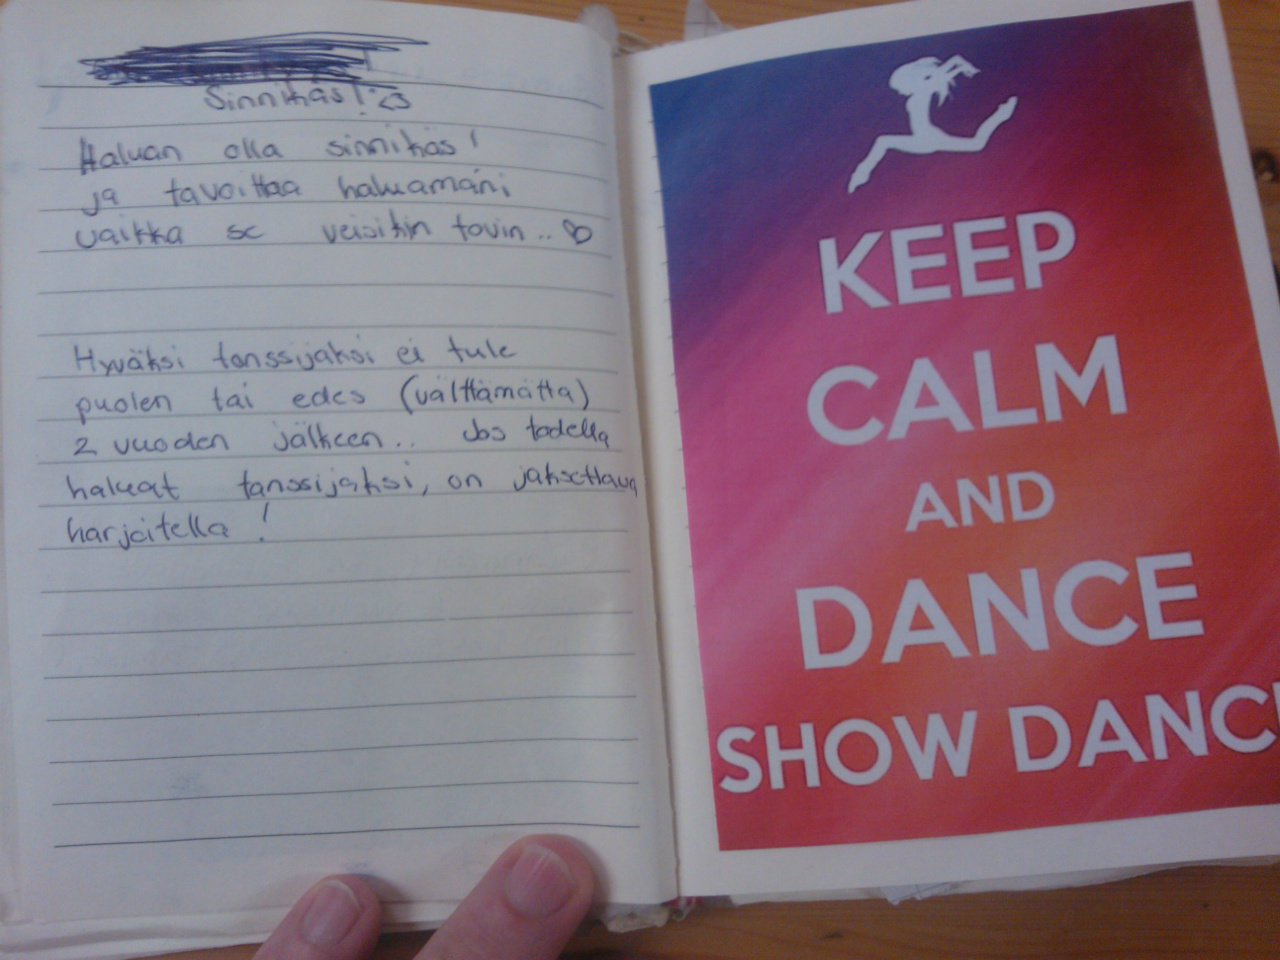 Sinnikäs! <3
Haluan olla sinnikäs!
ja tavoittaa haluamani
vaikka se veisikin tovin.. ♡
Hyväksi tanssijaksi ei tule
puolen tai edes (välttämättä)
2 vuoden jälkeen.. Jos todella
haluat tanssijaksi, on jaksettava
harjoitella!
KEEP
CALM
AND
DANCE
SHOW DANC